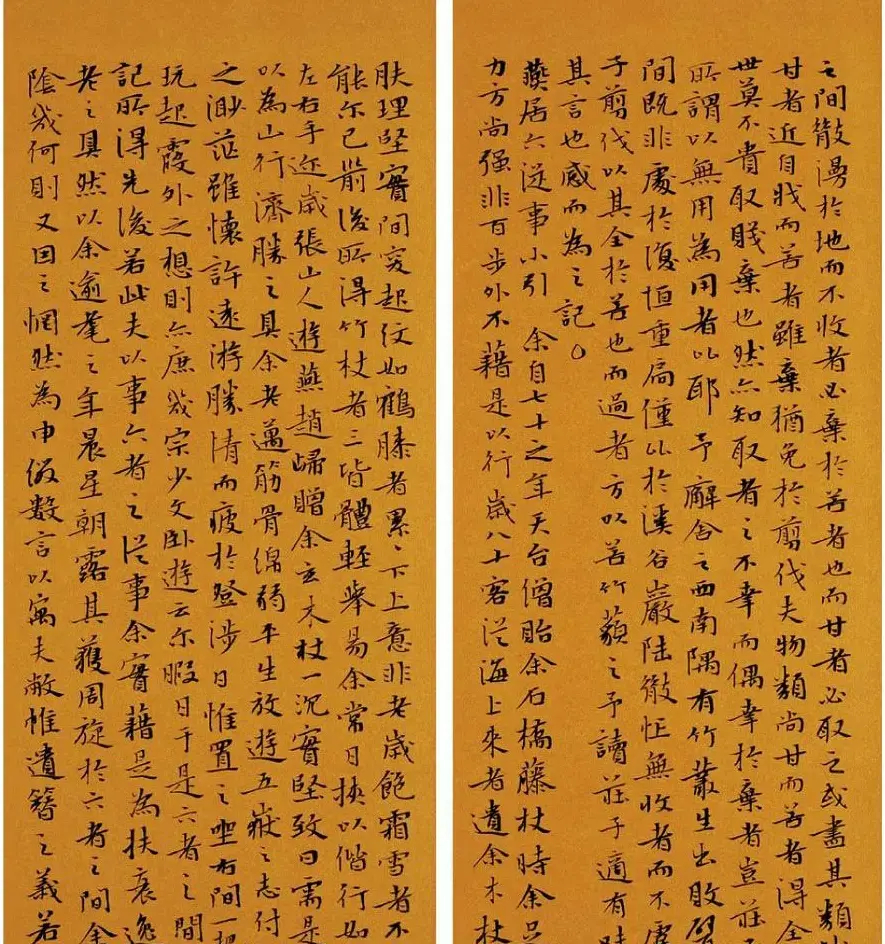 之間散漫於地而不收者必棄於苦者也而甘者必取之或盡其類
甘者近自戕而苦者雖棄猶免於剪伐夫物類尚甘而苦者得全
世莫不貴取賤棄也然亦知取者之不幸而偶幸於棄者豈莊
所謂以無用為用者比耶 予廨舍之西南隅有竹叢生出敗壁
間既非處於復垣重扃僅比於溪谷巖陸散恆無收者而不虞
予剪伐以其全於苦也而過者方以苦竹藐之予讀莊子適有味
其言也感而為之記
燕居六從事小引 余自七十之年天台僧貽余石橋藤杖時余足
力方尚强非百步外不藉是以行歲八十客從海上來者遺余木杖
膚理堅實間突起紋如鶴膝者累々下上意非老歲飽霜雪者不
能尔已前後所得竹杖者三皆體輕舉易余常日挾以偕行如
左右手近歲張山人遊燕趙歸贈余玄木杖一沉實堅致曰需是
以為山行濟勝之具余老邁筋骨綿弱平生放遊五嶽之志付
之渺茫雖懷許遠游勝情而疲於登涉日惟置之坐右間一把
玩起霞外之想則亦庶幾宗少文卧遊云尔暇日于是六者之間
記所得先後若此夫以事六者之從事余實藉是為扶衰逸
老之具然以余逾耄之年晨星朝露其獲周旋於六者之間余
陰幾何則又因之惘然為申數言以寓夫敝帷遺簪之義若